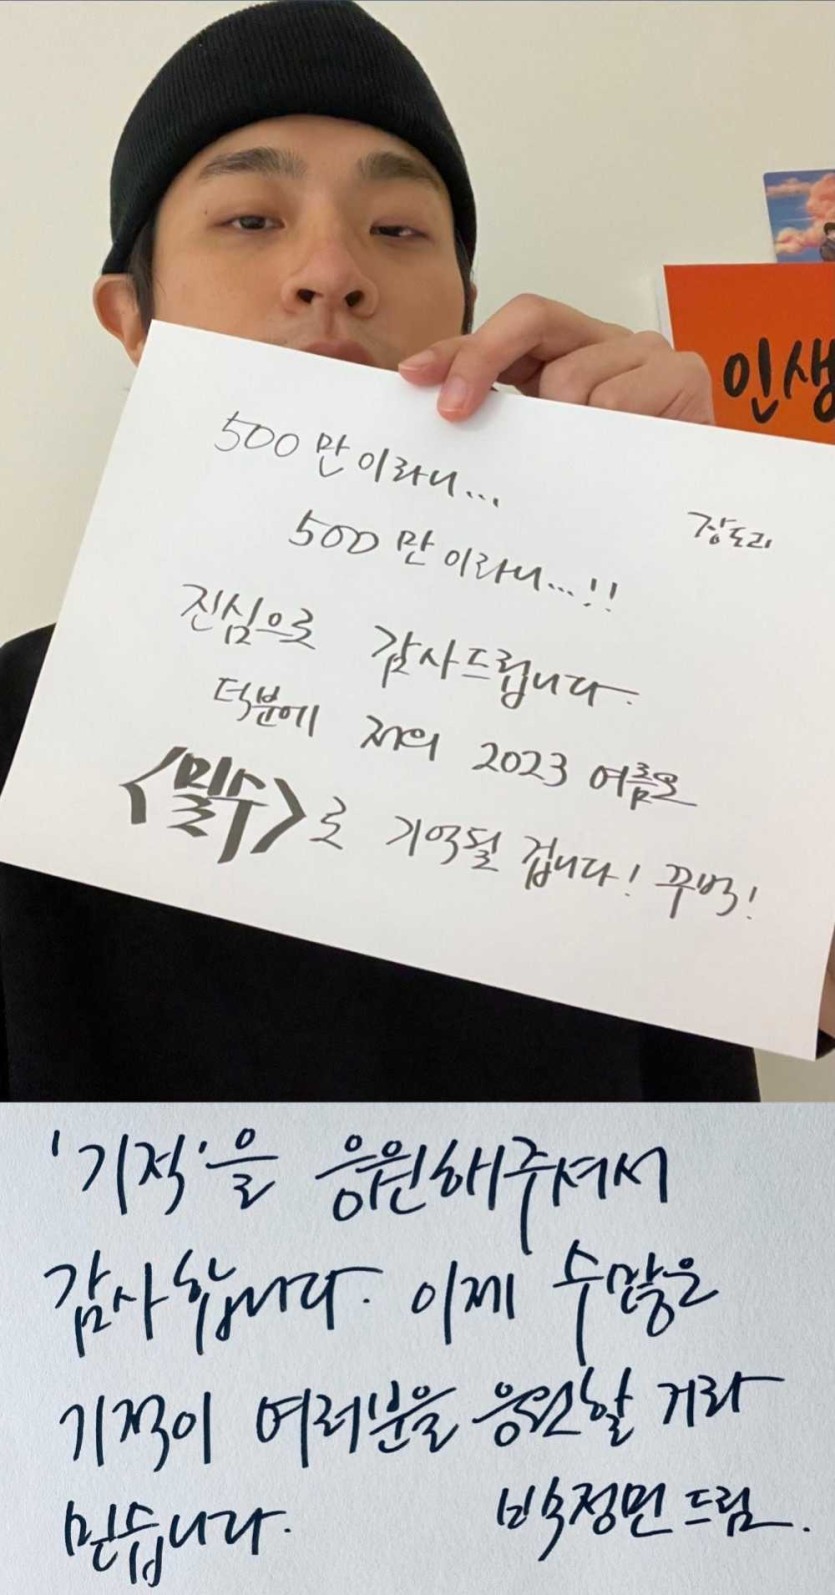 인생
500만이라니...
장도리
500만이라니...!!
진심으로 감사드립니다.
덕분에 저의 2023 여름은
<밀수>로 기억될 겁니다! 꾸벅!
'기적'을 응원해주셔서
감사합니다. 이제 수많은
기적이 여러분을 응원할 거라
믿습니다. 박정민 드림.